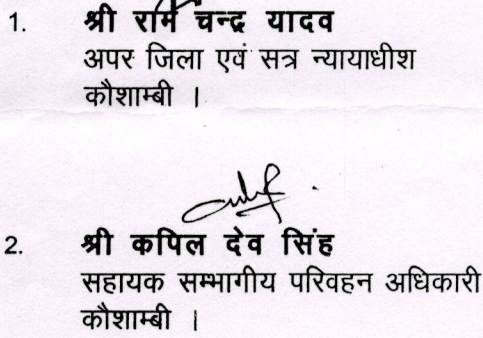 1. श्री राम चन्द्र यादव
अपर जिला एवं सत्र न्यायाधीश
कौशाम्बी ।
2. श्री कपिल देव सिंह
सहायक सम्भागीय परिवहन अधिकारी
कौशाम्बी ।